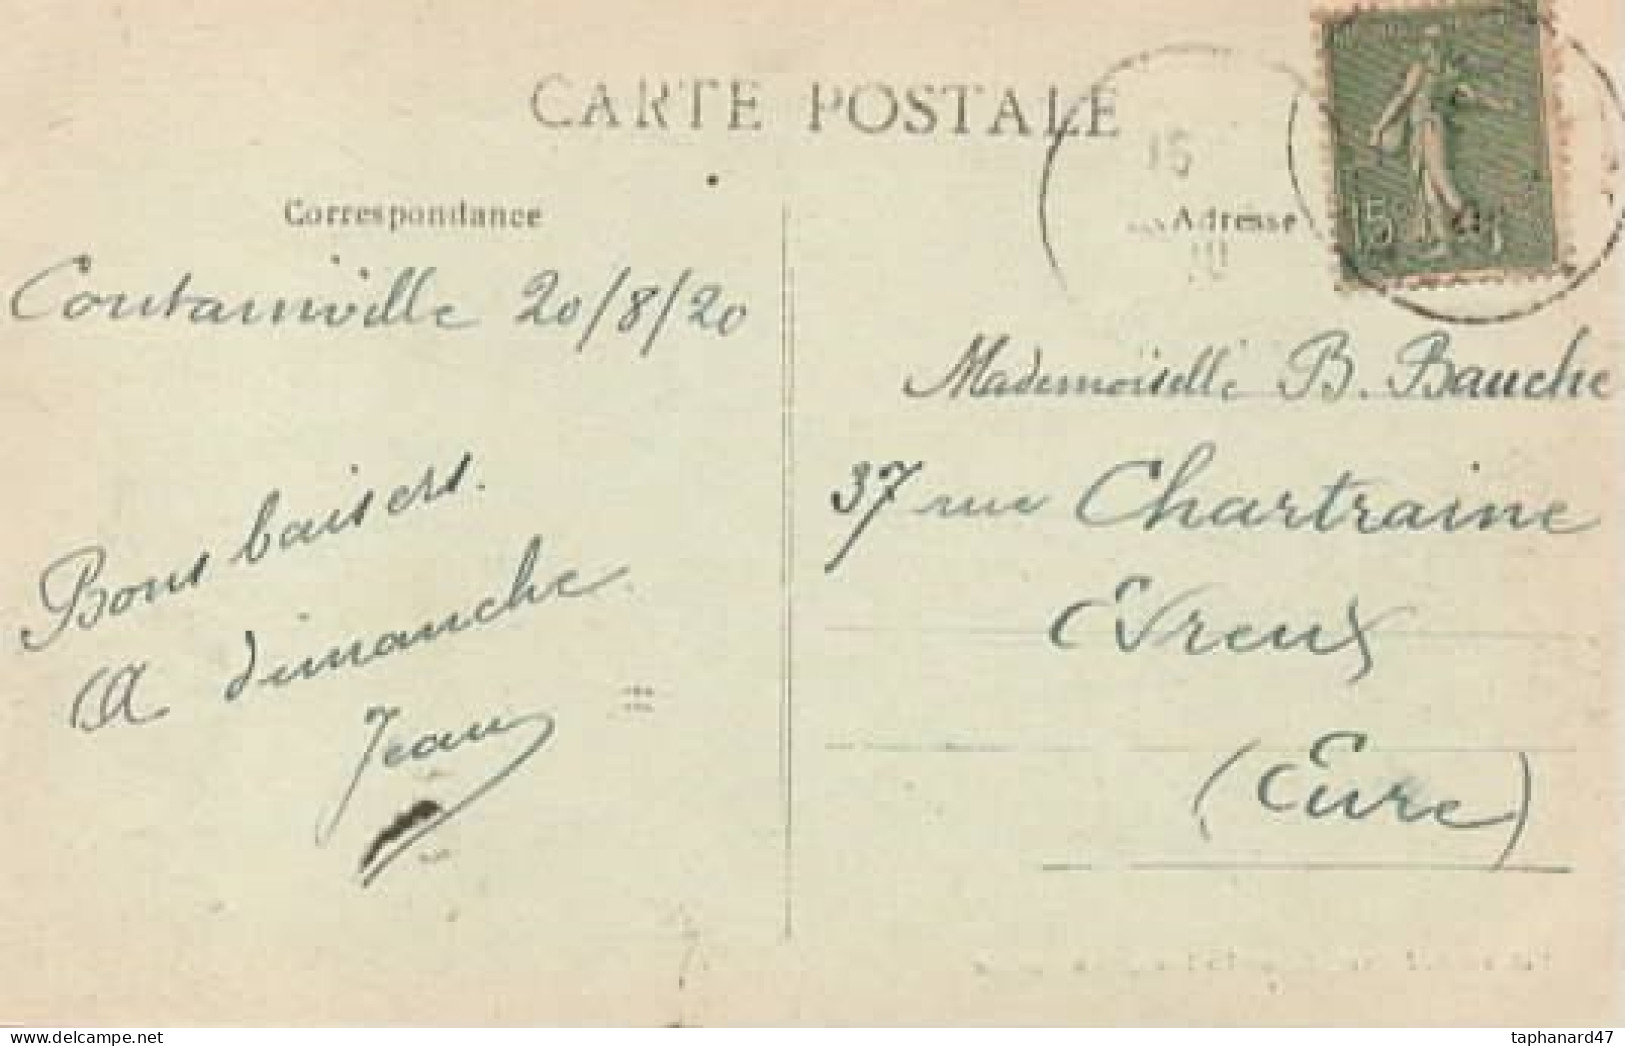 CARTE POSTALE
Correspondance
Coutainville 20/8/20
Bons baisers.
A dimanche
Jean
15
Adresse
15c
Mademoiselle B. Bauche
37 rue Chartraine
Evreux
(Eure)
https://www.delcampe.net
taphanard47